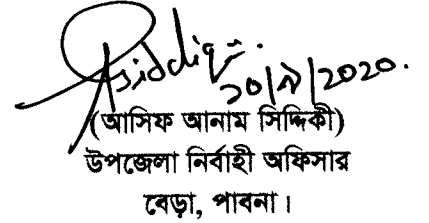 Asiddiqi
২০/৯/2020.
(আসিফ আনাম সিদ্দিকী)
উপজেলা নির্বাহী অফিসার
বেড়া, পাবনা।